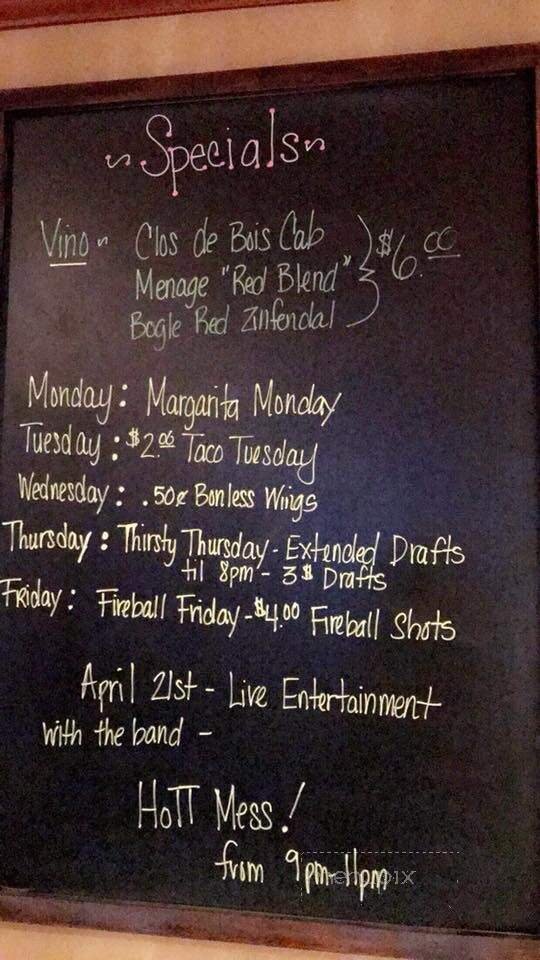 ~Specials~
Vino~ Clos de Bois Cab
Menage "Red Blend" $6.00
Bogle Red Zinfendal
Monday: Margarita Monday
Tuesday: $2.00 Taco Tuesday
Wednesday: .50¢ Bonless Wings
Thursday: Thirsty Thursday - Extended Drafts
til 8pm - 3$ Drafts
Friday: Fireball Friday - $4.00 Fireball Shots
April 21st - Live Entertainment
with the band -
HoTT Mess!
from 9pm-11pm
menupix